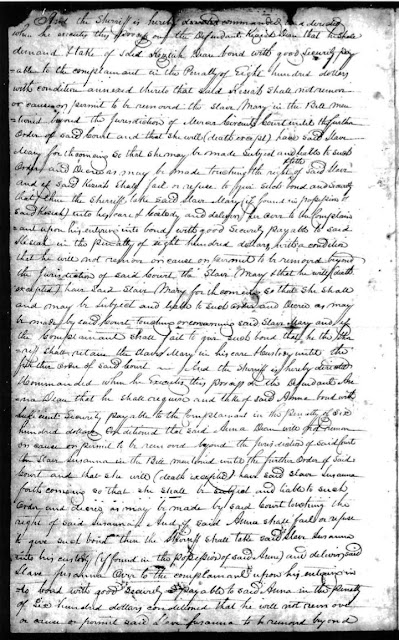 And the Sheriff is hereby commanded and directed
when he executes this process on the Defendant Kesiah Dean that he shall
demand & take of said Kesiah Dean bond with good Security pay
=able to the complainant in the Penalty of Eight hundred dollars
with condition annexed thereto that said Kesiah shall not remove
or cause or permit to be removed the Slave Mary in the Bill men
=tioned beyond the jurisdiction of Circuit Court until the further
Order of said Court and that she will (death except) have said Slave
Mary forthcoming so that she may be made Subject and liable to such
Order and Decree as may be made touching the right of said Slave
and if said Kesiah shall fail or refuse to give such bond and Security
that then the Sheriff take said Slave Mary (if found in possession of
said Kesiah) into his care & Custody and deliver her over to the Complain
=ant upon his entering into bond with good Security payable to said
Kesiah in the penalty of eight hundred dollars with a condition
that he will not remove or cause or permit to be removed beyond
the jurisdiction of said Court the Slave Mary & that he will (death
excepted) have said Slave Mary forthcoming so that She shall
and may be subject and liable to such order and decree as may
be made by said Court touching or concerning said Slave Mary and if
the Complainant shall fail to give such bond that he the She
riff shall retain the slave Mary in his care & custody until the
further order of said Court And the Sheriff is hereby directed
& commanded when he Executes this process on the Defendant An
=na Dean that he shall require and take of said Anna bond with
sufficient Security payable to the Complainant in the penalty of Six
hundred dollars Conditioned that said Anna Dean will not remove
or cause or permit to be removed beyond the jurisdiction of said Court
the Slave Susanna in the Bill mentioned until the further Order of said
Court and that she will (death excepted) have said Slave Susanna
forthcoming so that she shall be subject and liable to such
Order and decree as may be made by said Court touching the
right of said Susanna And if said Anna shall fail or refuse
to give such bond then the Sheriff shall take said Slave Susanna
into his custody (if found in the possession of said Anna) and deliver said
Slave Susanna over to the complainant upon his entering in
=to bond with good Security payable to said Anna in the penalty
of Six hundred dollars conditioned that he will not remove
or cause or permit said Slave Susanna to be removed beyond